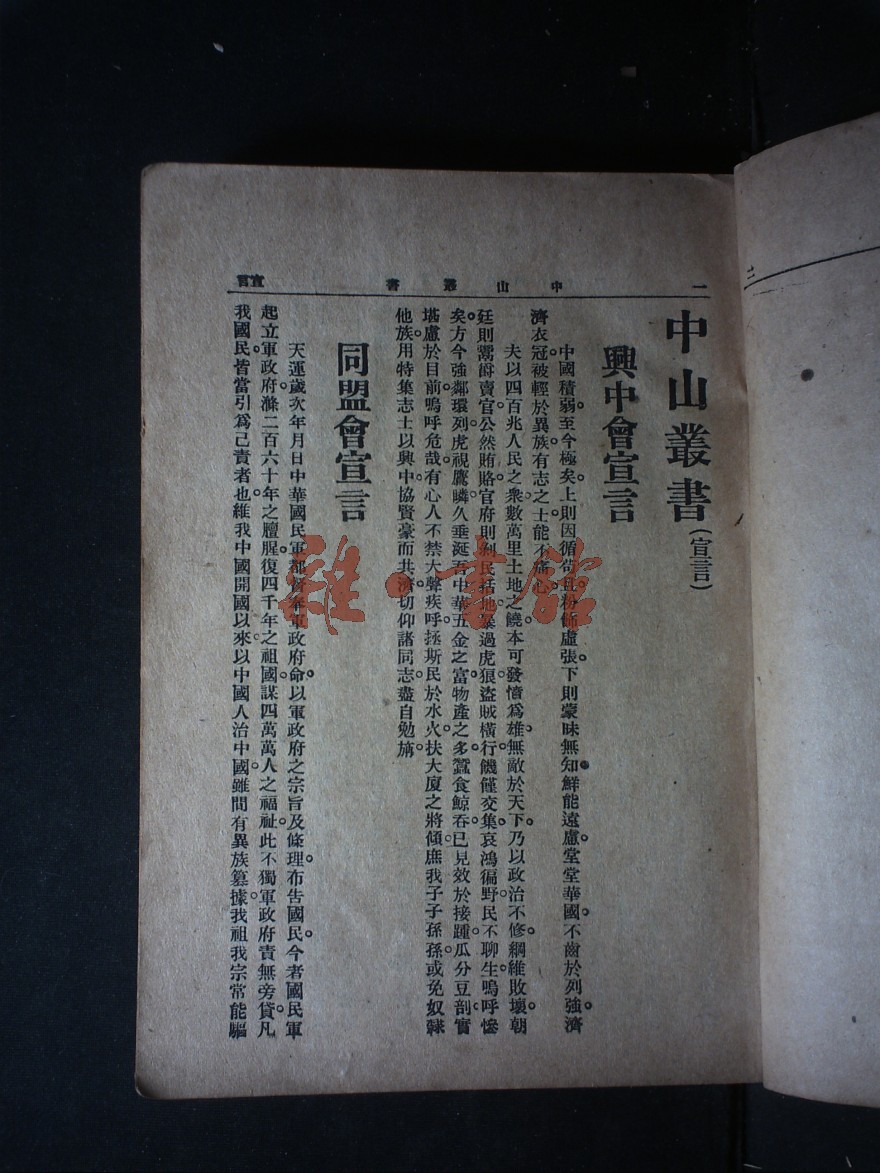 一　中山叢書　宣言
二
中山叢書(宣言)
興中會宣言
中國積弱至今極矣。上則因循苟且粉飾虛張。下則蒙昧無知鮮能遠慮。堂堂華國。不齒於列強。濟
濟衣冠。被輕於異族。有志之士。能不痛心。
夫以四百兆人民之衆。數萬里土地之饒。本可發憤爲雄。無敵於天下。乃以政治不修。綱維敗壞。朝
廷則鬻爵賣官。公然賄賂。官府則剝民括地。暴過虎狼。盜賊橫行。饑饉交集。哀鴻徧野。民不聊生。嗚呼慘
矣。方今強鄰環列。虎視鷹瞵。久垂涎吾中華五金之富。物產之多。蠶食鯨吞。已見效於接踵。瓜分豆剖。實
堪慮於目前。嗚呼危哉。有心人不禁大聲疾呼。拯斯民於水火。扶大廈之將傾。庶我子子孫孫。或免奴隸
他族。用特集志士以興中。協賢豪而共濟。切仰諸同志。盡自勉旃。
同盟會宣言
天運歲次年月日。中華國民軍都督奉軍政府命。以軍政府之宗旨及條理。布告國民。今者國民軍
起。立軍政府。滌二百六十年之膻腥。復四千年之祖國。謀四萬萬人之福祉。此不獨軍政府責無旁貸。凡
我國民。皆當引爲己責者也。維我中國開國以來。以中國人治中國。雖間有異族篡據。我祖我宗常能驅
雜·書館